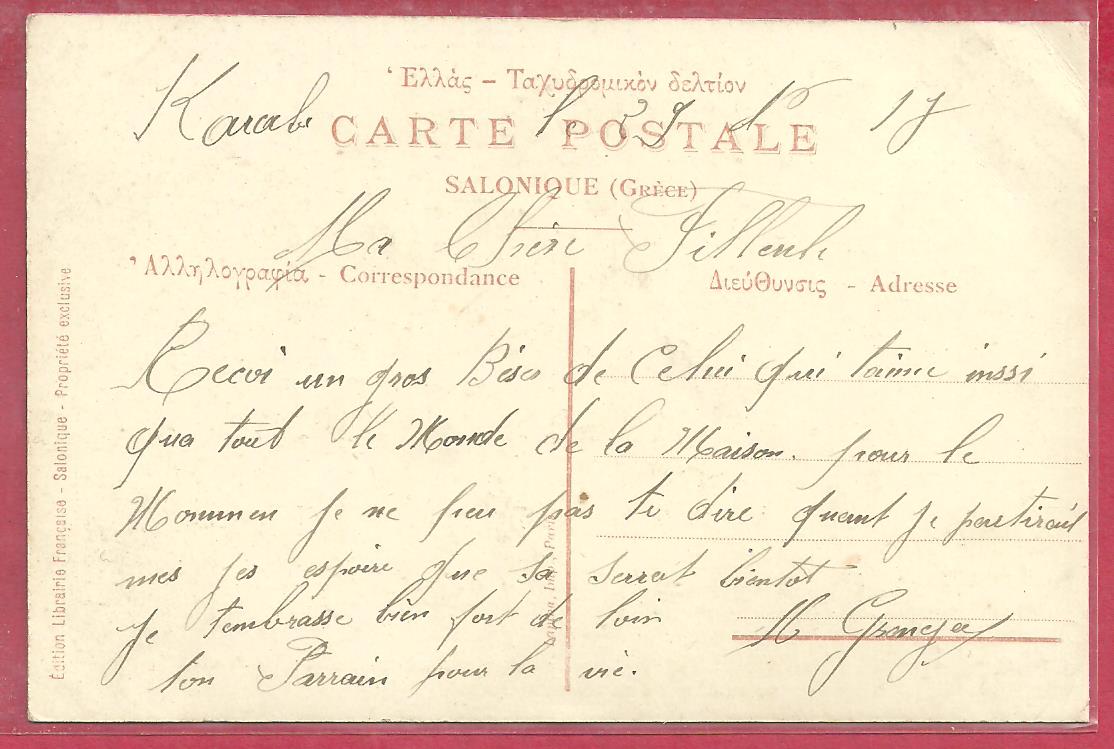 Ἑλλὰς – Ταχυδρομικὸν δελτίον
Karab le 29 17
CARTE POSTALE
SALONIQUE (GRÈCE)
Ma Chère Filleule
Ἀλληλογραφία - Correspondance
Διεύθυνσις - Adresse
Recoi un gros Bésé de Celui qui taime inssi
qua tout le Monde de la Maison. pour le
Mommen je ne peu pas te dire quant je partirait
mes jes espoire que sa serrat bientot
je tembrasse bien fort de loin
ton Parrain pour la vie.
Édition Librairie Française - Salonique - Propriété exclusive